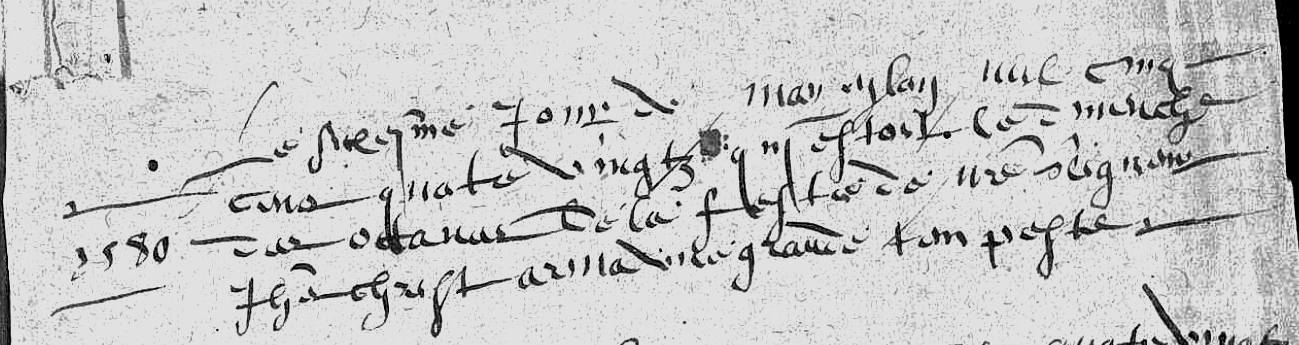 Le sixeyme jour de may eylan mil cinq
cens quatre vingtz quj estoit le dimenche
1580 des octaves de la feste de nre seigneur
Jhs christ arriva une grande tempeste
quatre vingt